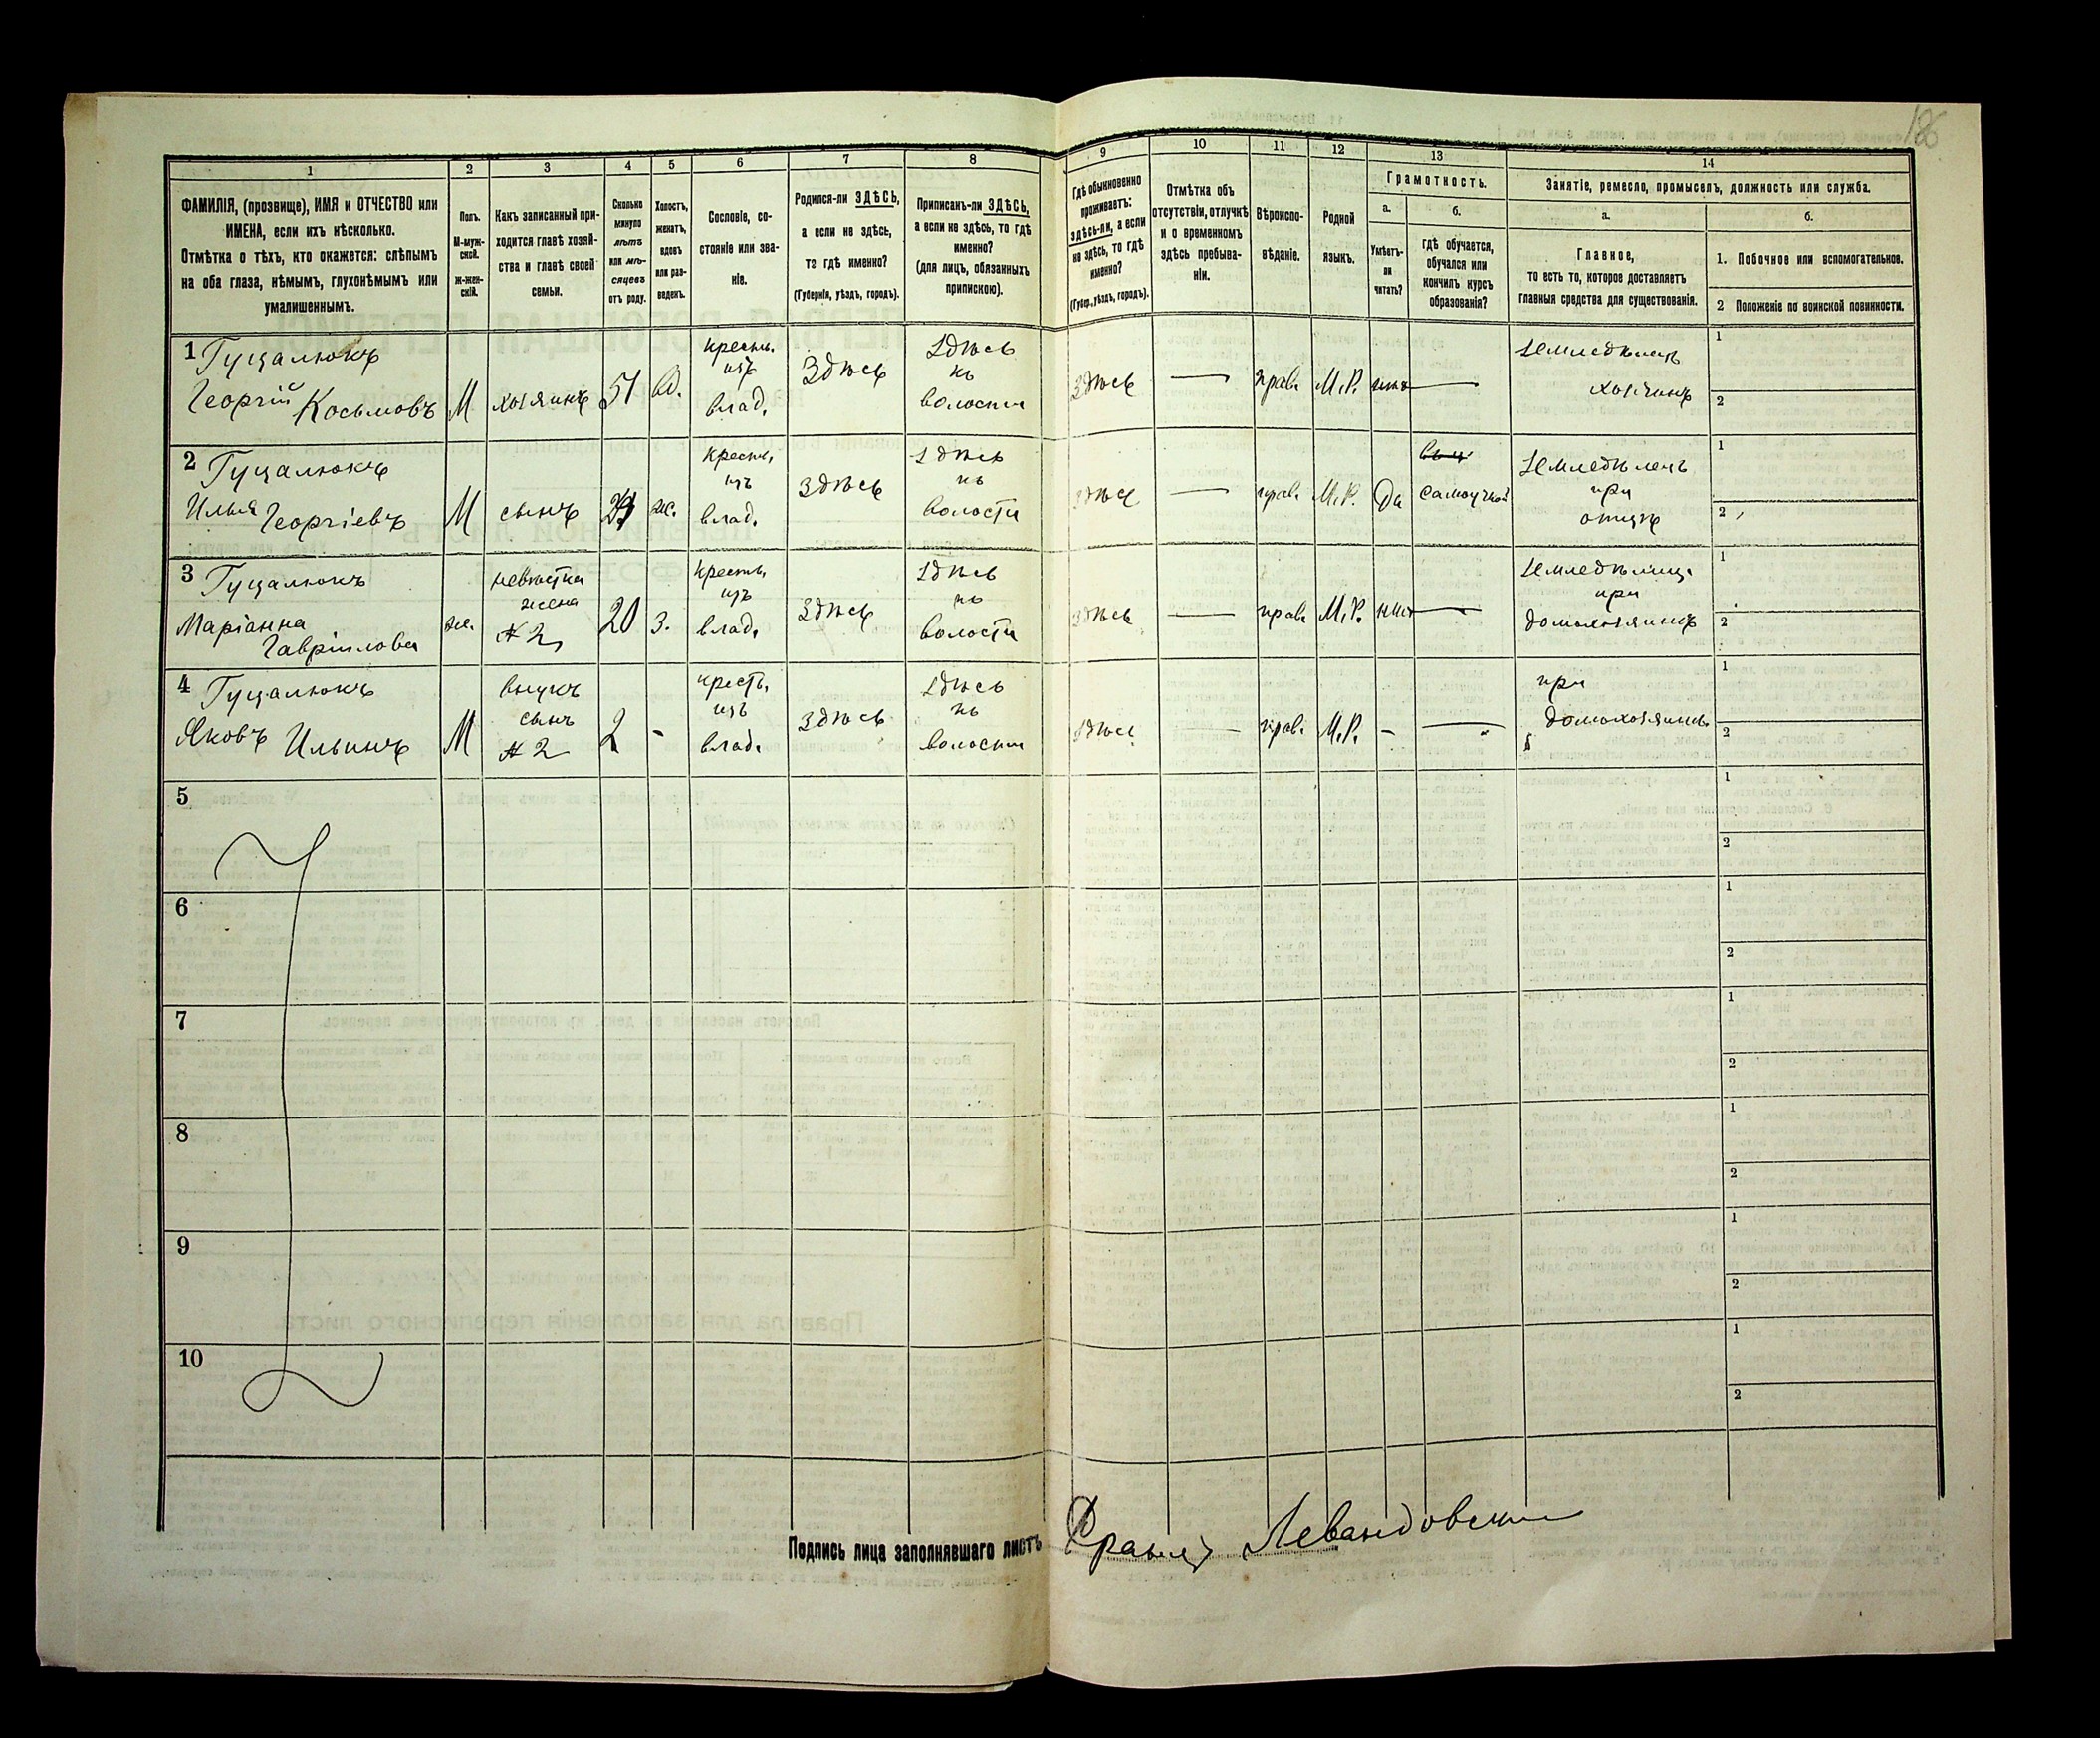 186
1 2 3 4 5 6 7 8 9 10 11 12 13 14
ФАМИЛІЯ, (прозвище), ИМЯ и ОТЧЕСТВО или
ИМЕНА, если ихъ нѣсколько.
Отмѣтка о тѣхъ, кто окажется: слѣпымъ
на оба глаза, нѣмымъ, глухонѣмымъ или
умалишеннымъ.
Полъ.
М-муж-
ской.
ж-жен-
скій.
Какъ записанный при-
ходится главѣ хозяй-
ства и главѣ своей
семьи.
Сколько
минуло
лѣтъ
или мѣ-
сяцевъ
отъ роду.
Холостъ,
женатъ,
вдовъ
или раз-
веденъ.
Сословіе, со-
стояніе или зва-
ніе.
Родился-ли ЗДѢСЬ,
а если не здѣсь,
то гдѣ именно?
(Губернія, уѣздъ, городъ).
Приписанъ-ли ЗДѢСЬ,
а если не здѣсь, то гдѣ
именно?
(для лицъ, обязанныхъ
припискою).
Гдѣ обыкновенно
проживаетъ:
здѣсь-ли, а если
не здѣсь, то гдѣ
именно?
(Губер., уѣздъ, городъ).
Отмѣтка объ
отсутствіи, отлучкѣ
и о временномъ
здѣсь пребыва-
ніи.
Вѣроиспо-
вѣданіе.
Родной
языкъ.
Грамотность.
а.
Умѣетъ-
ли
читать?
б.
гдѣ обучается,
обучался или
кончилъ курсъ
образованія?
Занятіе, ремесло, промыселъ, должность или служба.
а.
Главное,
то есть то, которое доставляетъ
главныя средства для существованія.
б.
1. Побочное или вспомогательное.
2 Положеніе по воинской повинности.
1 Гуцалюкъ
Георгій Косьмовъ
М
хозяинъ
51
вд.
крестьн.
изъ
влад.
Здѣсь
Здѣсь
къ
волости
здѣсь
—
прав.
М.Р.
нѣтъ
—
земледѣлецъ
хозяинъ
1
2
2 Гуцалюкъ
Илья Георгіевъ
М
сынъ
ж.
крестьн.
изъ
влад.
Здѣсь
Здѣсь
къ
волости
здѣсь
—
прав.
М.Р.
Да
самоучкой
земледѣлецъ
при
отцѣ
1
2
3 Гуцалюкъ
Маріанна
Гавріилова
ж.
невѣстка
жена
№ 2
20
з.
крестьн.
изъ
влад.
Здѣсь
Здѣсь
къ
волости
здѣсь
—
прав.
М.Р.
нѣтъ
—
земледѣлица
при
домохозяинѣ
1
2
4 Гуцалюкъ
Яковъ Ильинъ
М
внукъ
сынъ
№ 2
2
-
крестьн.
изъ
влад.
Здѣсь
Здѣсь
къ
волости
здѣсь
—
прав.
М.Р.
-
—
при
домохозяинѣ
1
2
5
1
2
6
1
2
7
1
2
8
1
2
9
1
2
10
1
2
Подпись лица заполнявшаго листъ Францъ Левандовскій